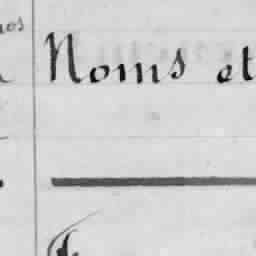 nos
Noms et